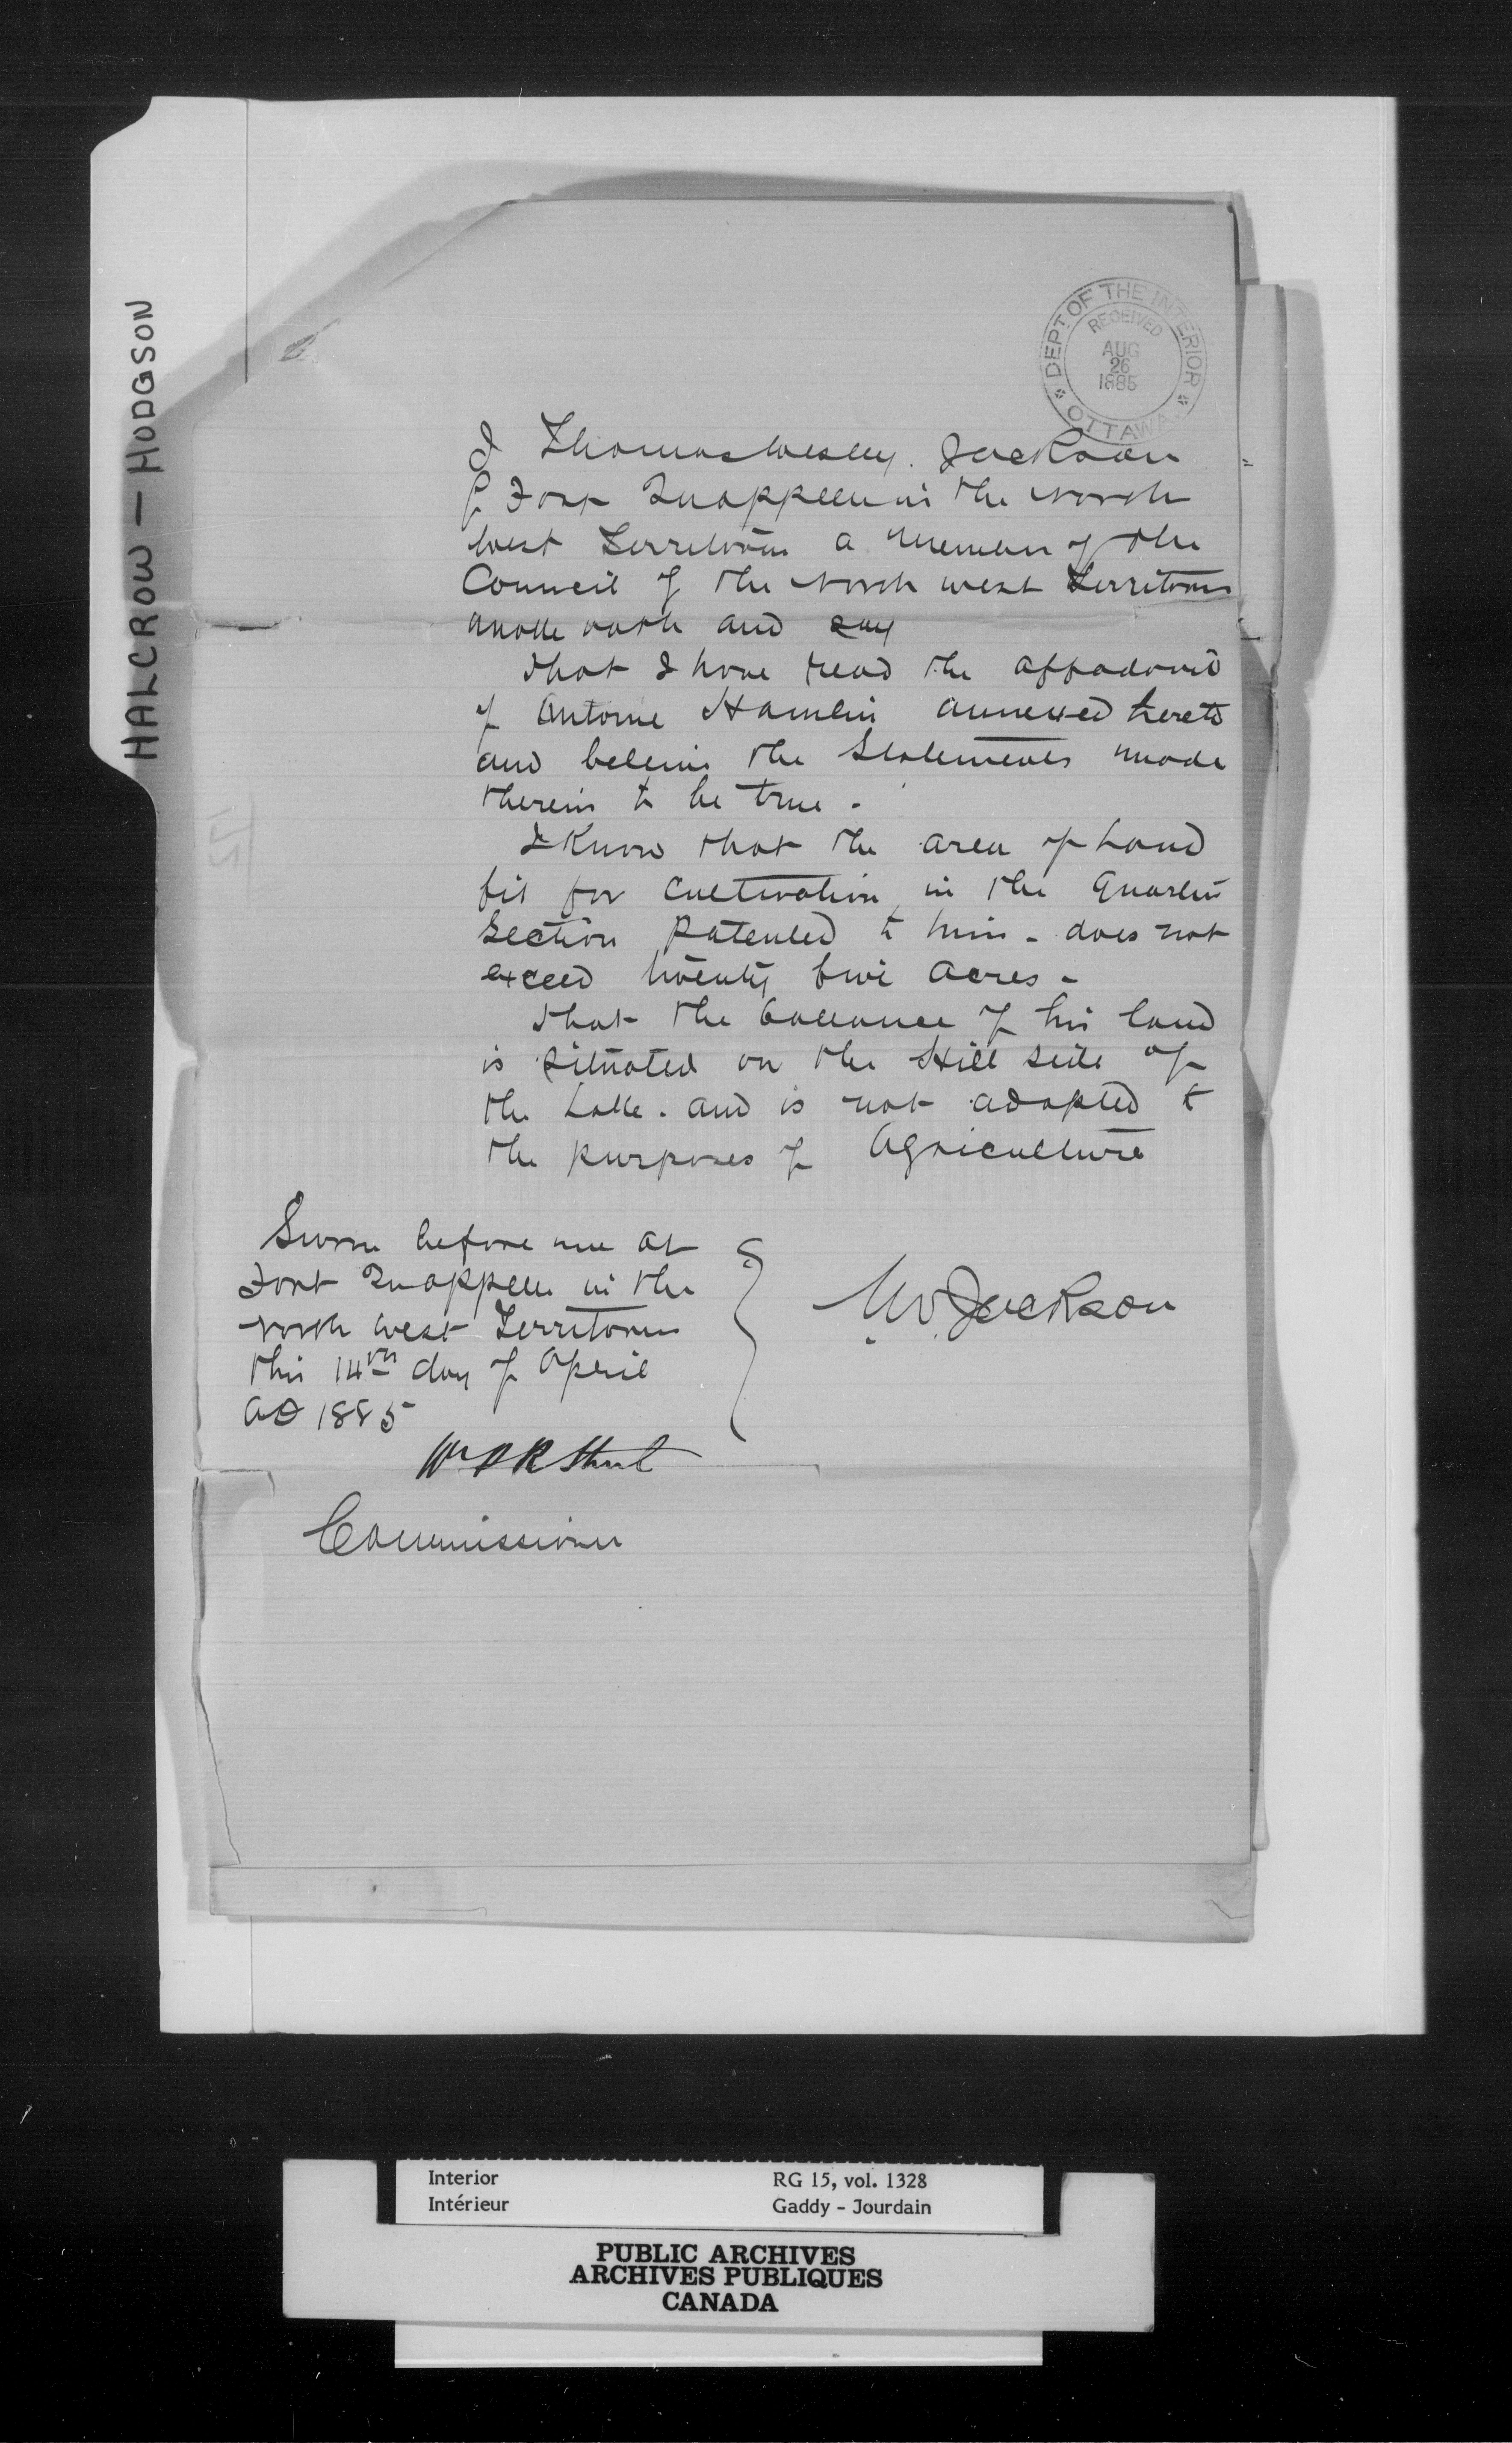 HALCROW — HODGSON
DEPT OF THE INTERIOR
RECEIVED
AUG
26
1885
OTTAWA
I Thomas Wesley Jackson
of Fort Quappelle in the North
West Territories a Member of the
Council of the North west Territories
make oath and say
that I have read the affadavit
of Antoine Hamlin annexed hereto
and believe the Statements made
therein to be true -
I Know that the area of Land
fit for cultivation in the Quarter
Section Patented to him - does not
exceed twenty five acres -
that the ballance of his land
is situated on the Hill side of
the Lake. and is not adapted to
the purposes of Agriculture
Sworn before me at
Fort Quappelle in the
North West Territories
this 14th day of April
AD 1885
TW Jackson
Commissioner
Interior RG 15, vol. 1328
Intérieur Gaddy - Jourdain
PUBLIC ARCHIVES
ARCHIVES PUBLIQUES
CANADA